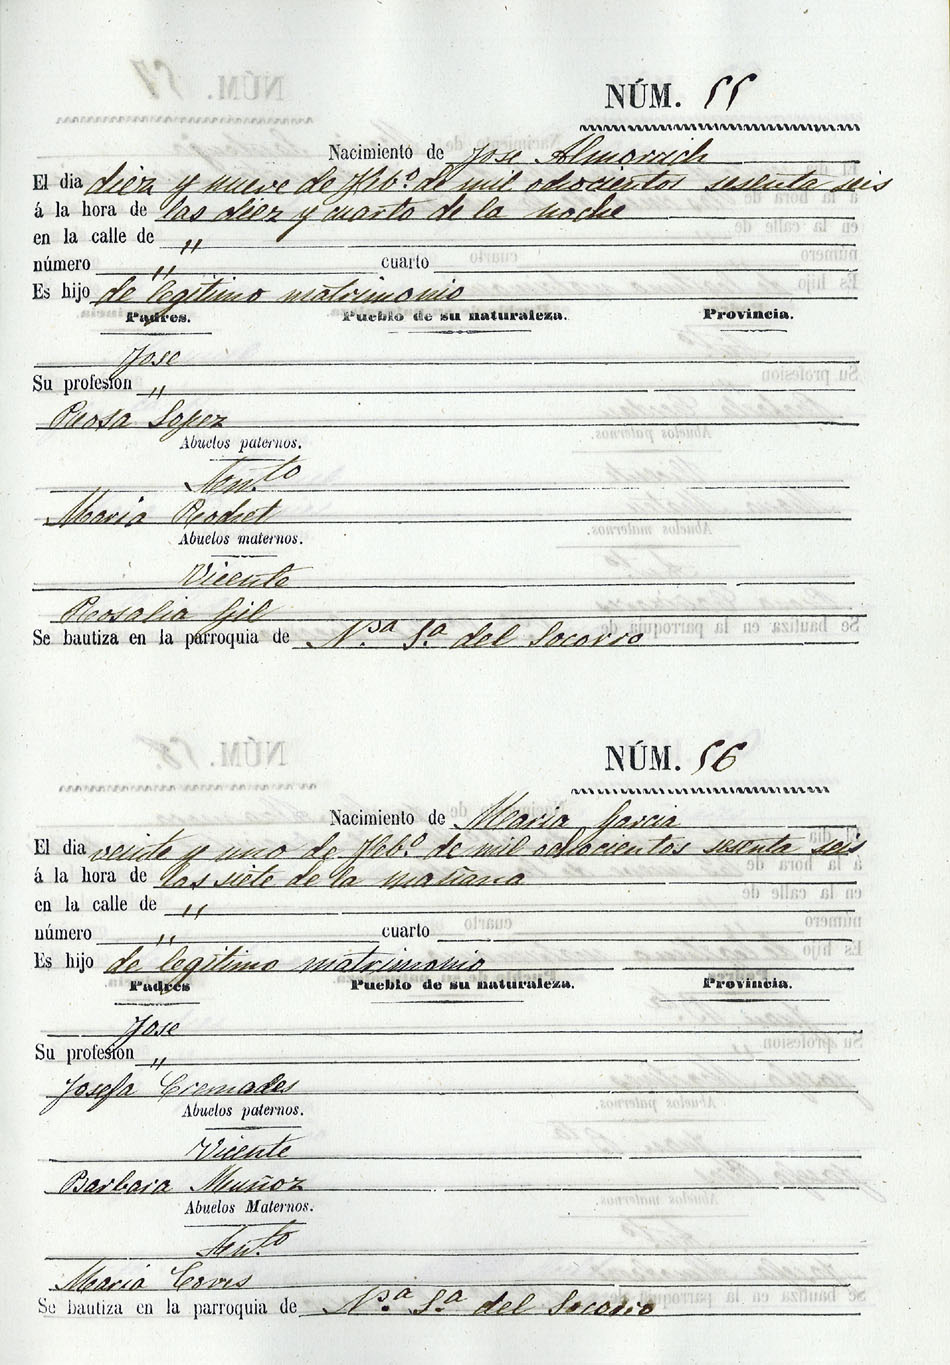 NÚM. 55
Nacimiento de Jose Almorzich
El dia diez y nueve de Feb.º de mil ochocientos sesenta seis
á la hora de las diez y cuarto de la noche
en la calle de "
número " cuarto
Es hijo de legitimo matrimonio
Padres. Pueblo de su naturaleza. Provincia.
Jose
Su profesion "
Rosa Lopez
Abuelos paternos.
Ant.to
Maria Rodret
Abuelos maternos.
Vicente
Rosalia Gil
Se bautiza en la parroquia de N.ª S.ª del Socorro
NÚM. 56
Nacimiento de Maria Garcia
El dia veinte y uno de Feb.º de mil ochocientos sesenta seis
á la hora de las siete de la mañana
en la calle de "
número " cuarto
Es hijo de legitimo matrimonio
Padres Pueblo de su naturaleza. Provincia.
Jose
Su profesion "
Josefa Cremades
Abuelos paternos.
Vicente
Barbara Muñoz
Abuelos Maternos.
Ant.to
Maria
Se bautiza en la parroquia de N.ª S.ª del Socorro